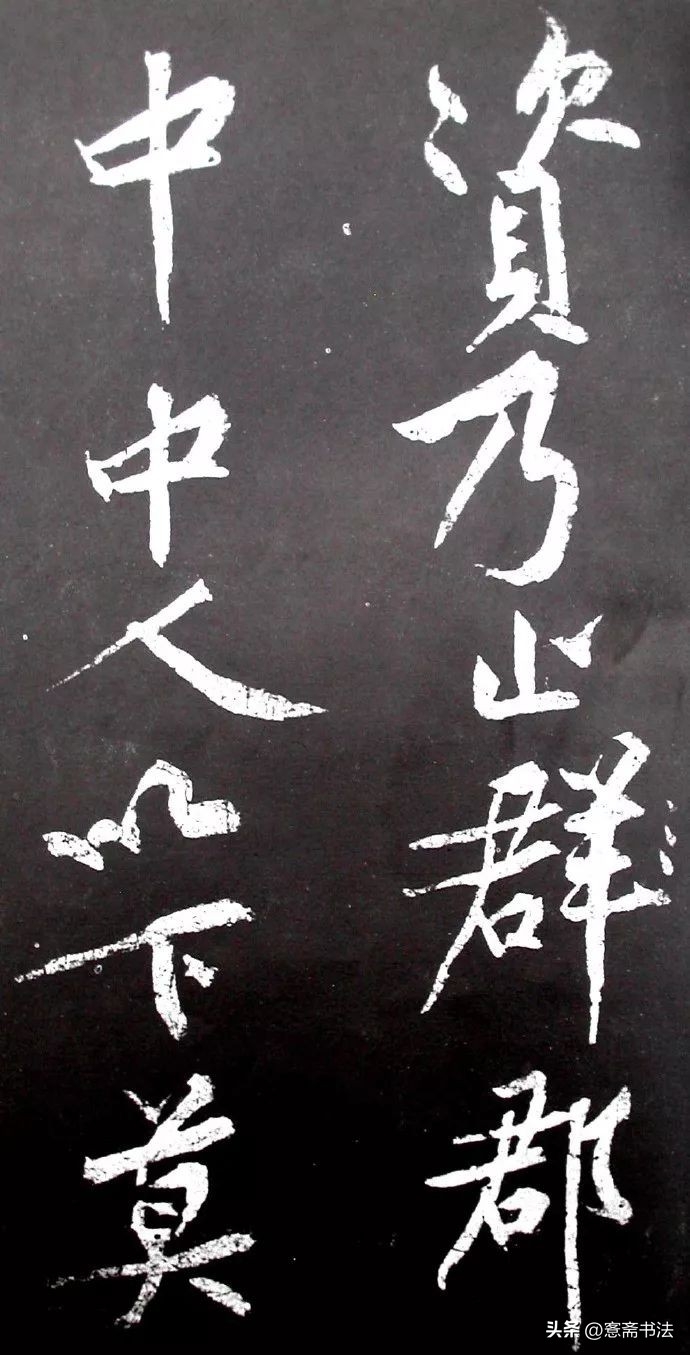 資乃止群郡
中中人以下莫
头条@愙斋书法